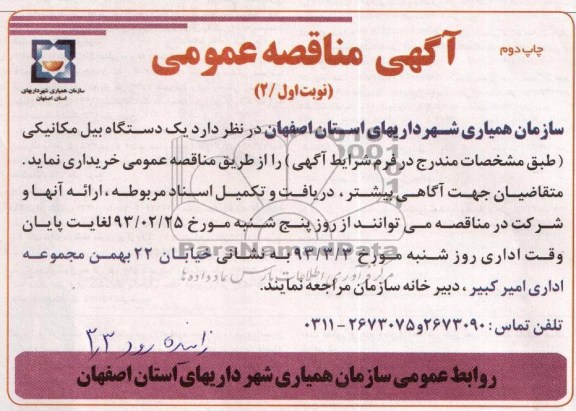 چاپ دوم
آگهی مناقصه عمومی
(نوبت اول /۲)
سازمان همیاری شهرداریهای
استان اصفهان
سازمان همیاری شهرداریهای استان اصفهان در نظر دارد یک دستگاه بیل مکانیکی
( طبق مشخصات مندرج در فرم شرایط آگهی ) را از طریق مناقصه عمومی خریداری نماید.
متقاضیان جهت آگاهی بیشتر ، دریافت و تکمیل اسناد مربوطه ، ارائه آنها و
شرکت در مناقصه می توانند از روز پنج شنبه مورخ ۹۳/۰۲/۲۵ لغایت پایان
وقت اداری روز شنبه مورخ ۹۳/۳/۳ به نشانی خیابان ۲۲ بهمن مجموعه
ParsNamadData
اداری امیر کبیر ، دبیر خانه سازمان مراجعه نمایند.
تلفن تماس : ۲۶۷۳۰۹۰ و ۲۶۷۳۰۷۵ - ۰۳۱۱
زاینده رود ۳٫۳
روابط عمومی سازمان همیاری شهرداریهای استان اصفهان